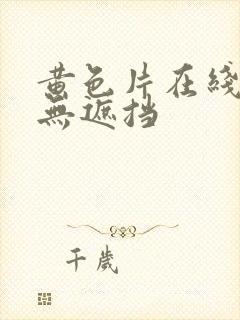 黄色片在线
無遮挡
千歲